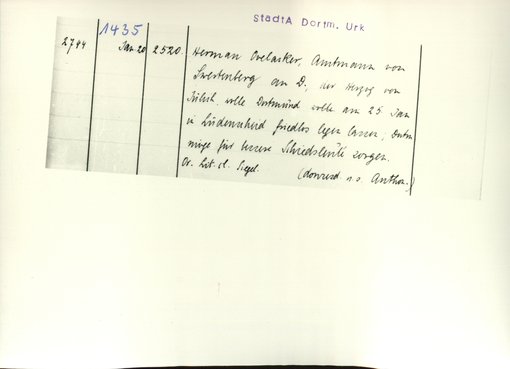 StadtA Dortm. Urk
1435
2794 Jan 20 2520.
Herman Ovelacker, Amtmann von
Swertenberg an D., der Herzog von
Jülich wolle Dortmund wolle am 25 Jan
in Lüdenscheid friedlos legen lassen,
möge für bessere Schiedsleute sorgen.
Or. lit. cl. Siegel. (donresd. n. s. Anthon.)